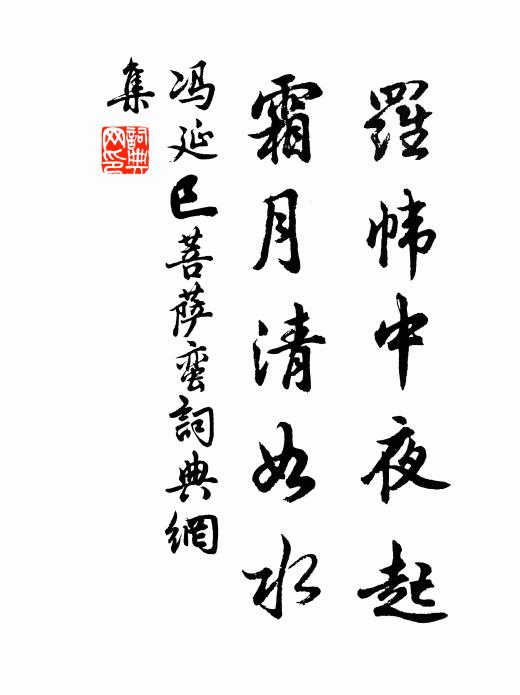 羅幃中夜起
霜月清如水
冯延巳菩萨蛮詞典網
集
詞典
网印